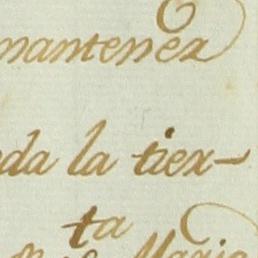 mantener
da la tier-
ta
Maria